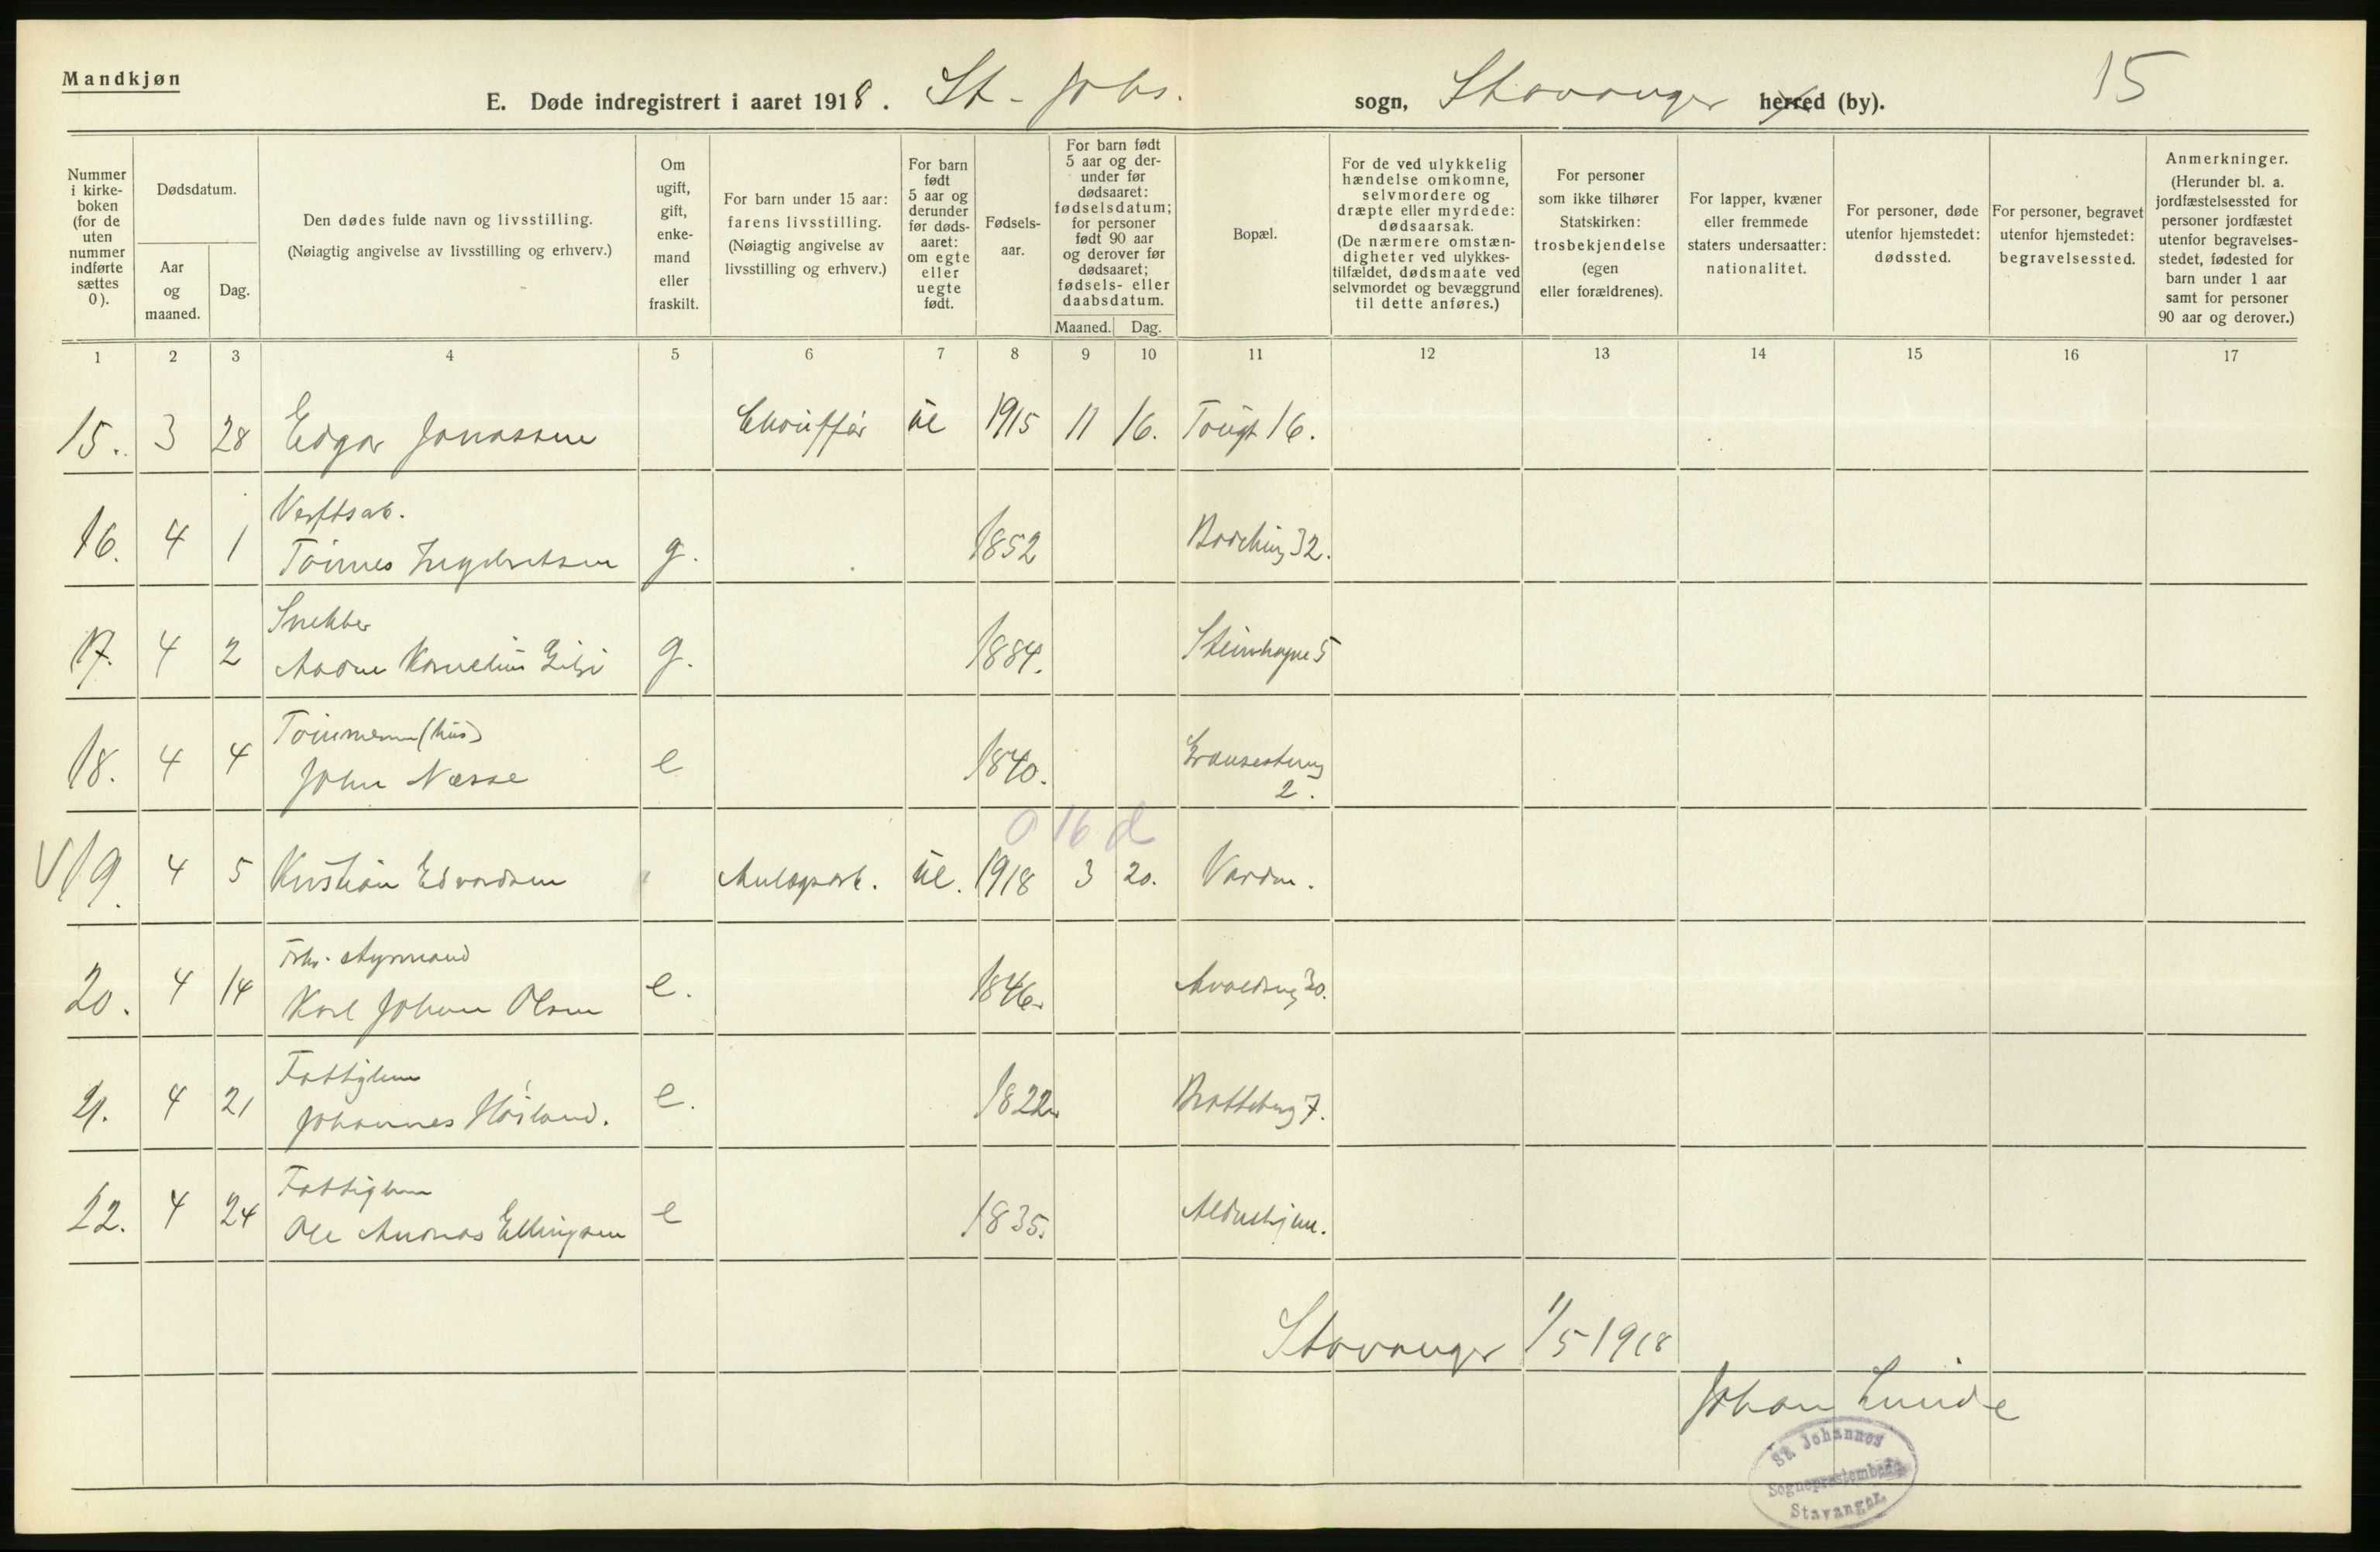 Mandkjøn
E. Døde indregistrert i aaret 1918. St. Johs. sogn, Stavanger herred (by). 15
Nummer i kirke-boken (for de uten nummer indførte sættes 0).
Dødsdatum.
Aar og maaned.
Dag.
Den dødes fulde navn og livsstilling.
(Nøiagtig angivelse av livsstilling og erhverv.)
Om ugift, gift, enke-mand eller fraskilt.
For barn under 15 aar: farens livsstilling.
(Nøiagtig angivelse av livsstilling og erhverv.)
For barn født 5 aar og derunder før døds-aaret: om egte eller uegte født.
Fødsels-aar.
For barn født 5 aar og der-under før dødsaaret: fødselsdatum; for personer født 90 aar og derover før dødsaaret; fødsels- eller daabsdatum.
Maaned.
Dag.
Bopæl.
For de ved ulykkelig hændelse omkomne, selvmordere og dræpte eller myrdede: dødsaarsak.
(De nærmere omstæn-digheter ved ulykkes-tilfældet, dødsmaate ved selvmordet og bevæggrund til dette anføres.)
For personer som ikke tilhører Statskirken: trosbekjendelse (egen eller forældrenes).
For lapper, kvæner eller fremmede staters undersaatter: nationalitet.
For personer, døde utenfor hjemstedet: dødssted.
For personer, begravet utenfor hjemstedet: begravelsessted.
Anmerkninger.
(Herunder bl. a. jordfæstelsessted for personer jordfæstet utenfor begravelses-stedet, fødested for barn under 1 aar samt for personer 90 aar og derover.)
1 2 3 4 5 6 7 8 9 10 11 12 13 14 15 16 17
15. 3 28 Edgar Jonassen 1915 11 16. 16.
Verftsarb.
16. 4 1 g. 1852 32.
Snekker
17. 4 2 g. 1884. Steinhagen 5
Tømmerm (hus)
18. 4 4 John Næsse e 1840.
2.
0 16 d
19. 4 5 Kristian Edvardsen Anlægsarb. 1918 3 20. Varden.
Styrmand
20. 4 14 Karl Johan Olsen e. 1846. 30.
Fattiglem
21. 4 21 Johannes e. 1822. 7.
Fattiglem
22. 4 24 Ole Andreas Ellingsen e 1835.
Stavanger 1/5 1918
Johan Lunde
St Johannes
Sogneprestembede
Stavanger